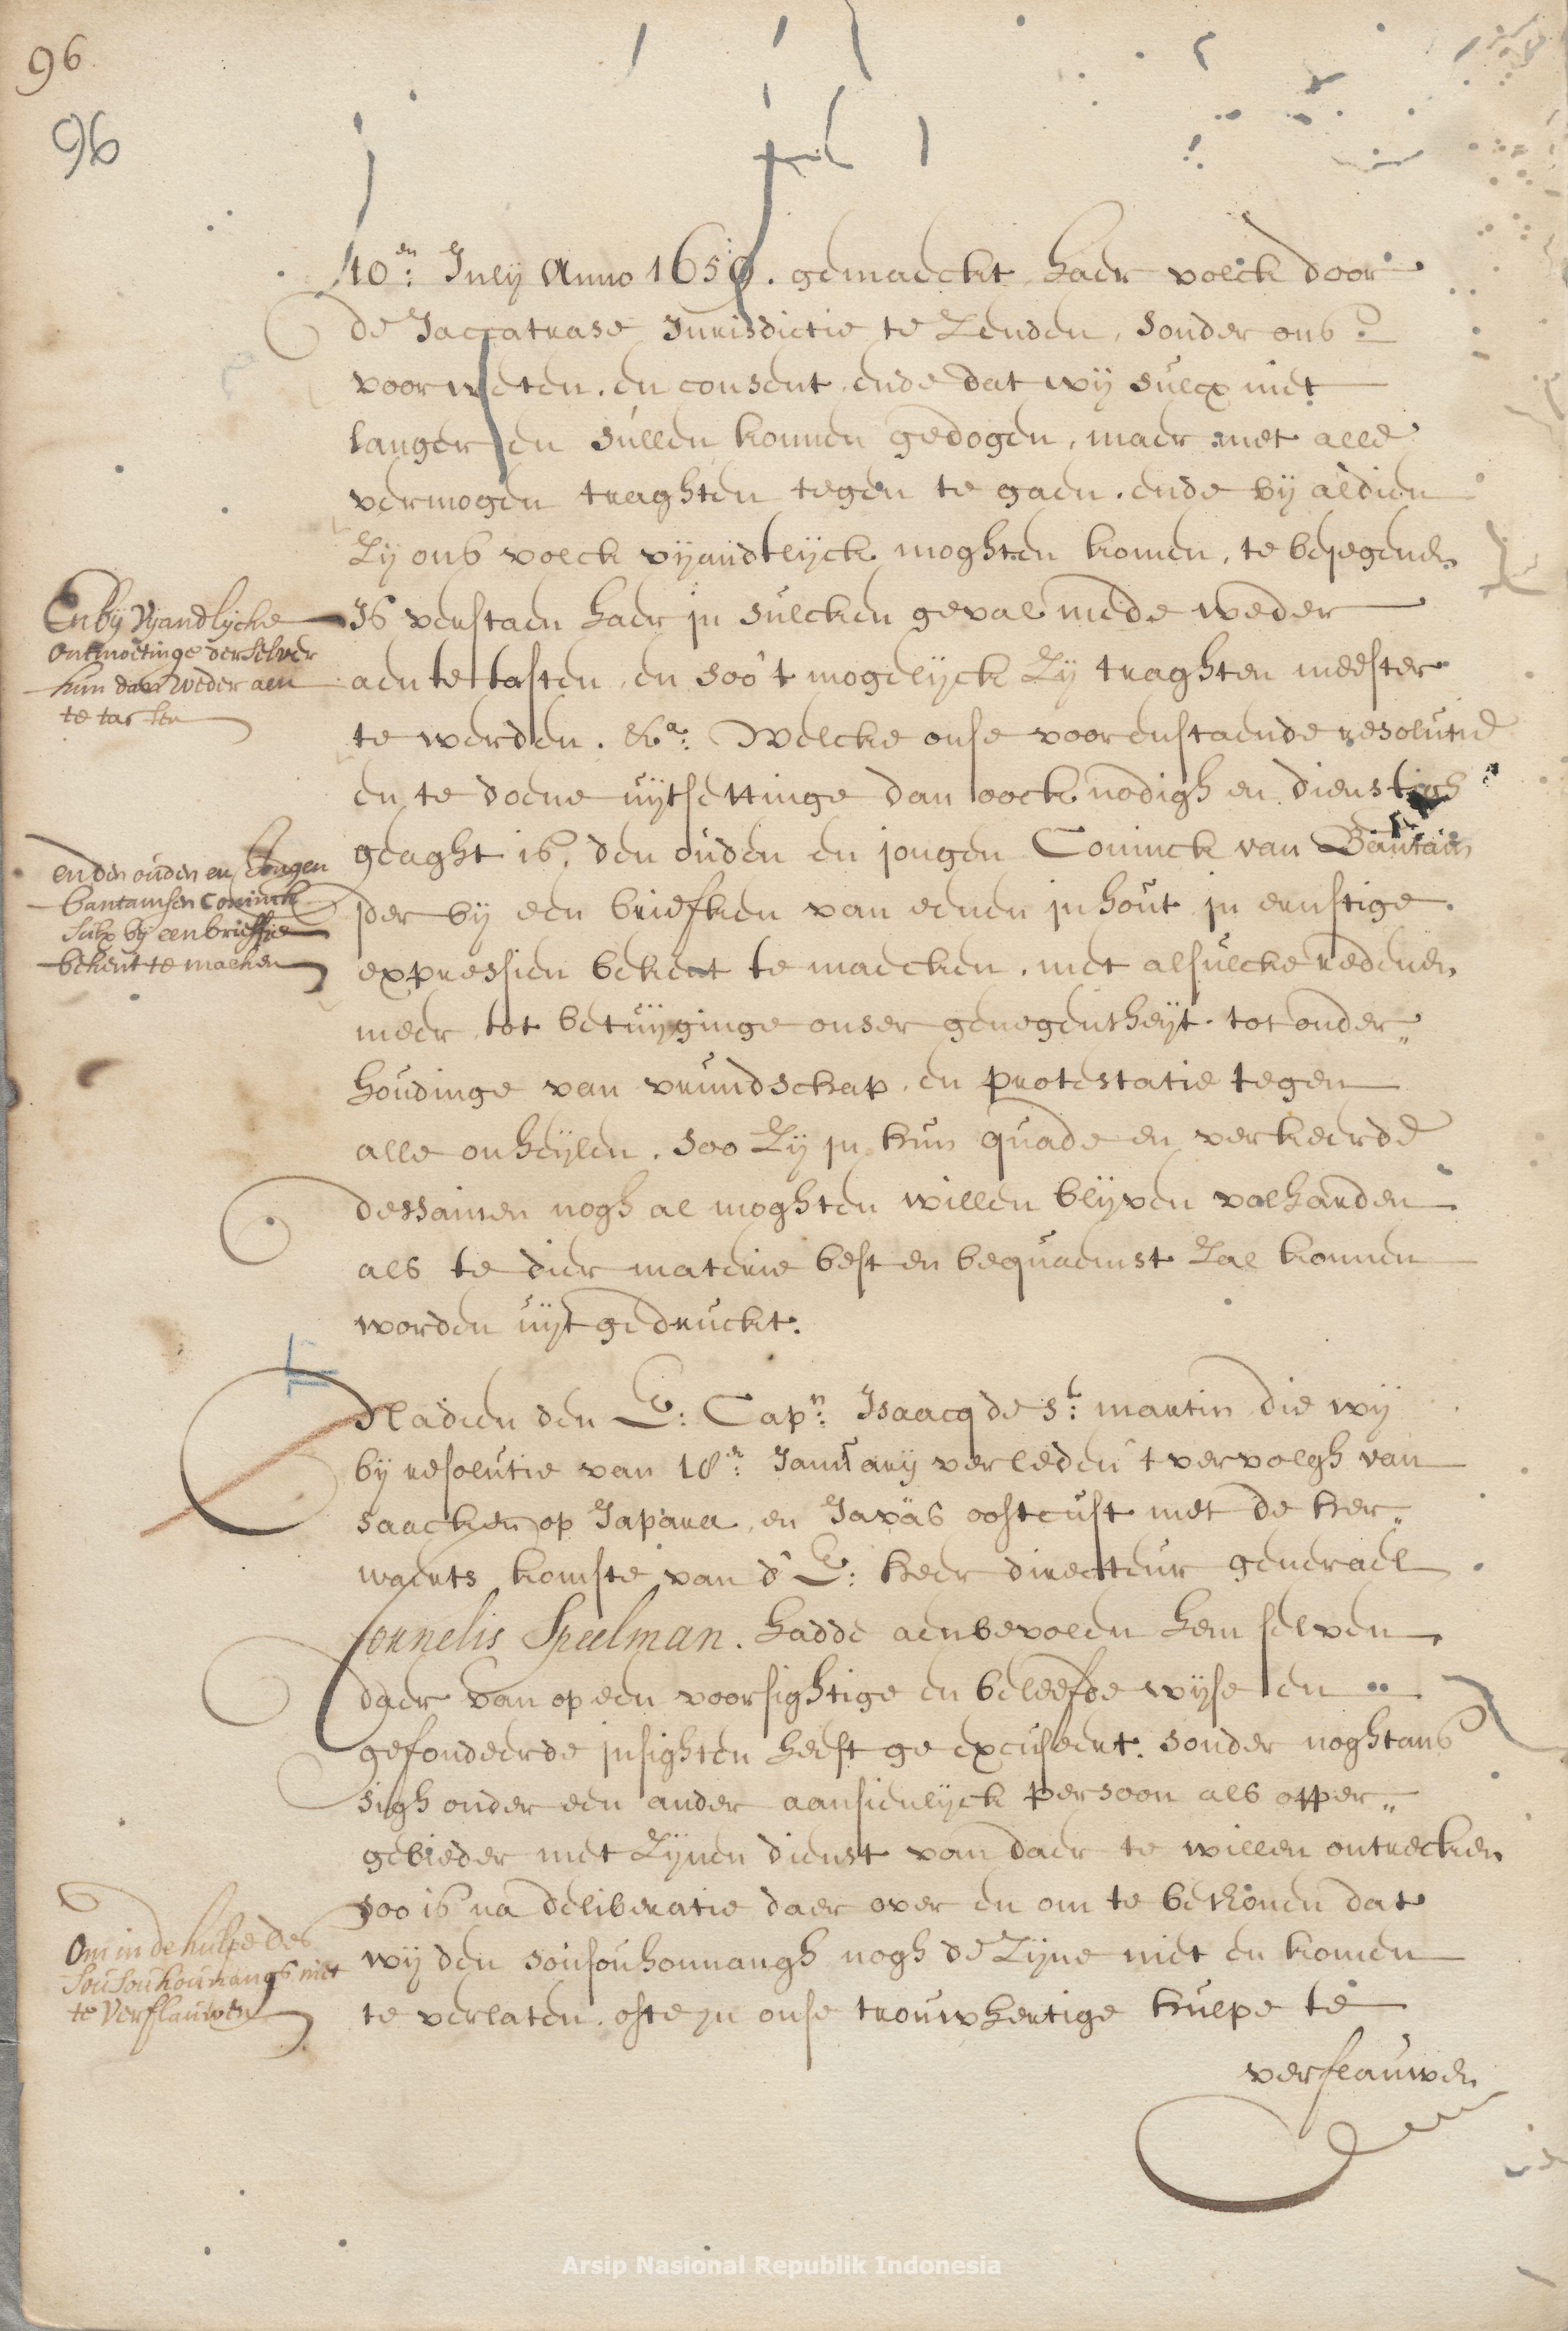 96
96
10.en: Julij Anno 1659. gemaeckt, haer volck door
de Jaccatrase Jurisdictie te Zenden, sonder ons
voorweten. en consent ende dat wij sulcx niet
langer en sullen konnen gedogen, maer met alle
vermogen traghten tegen te gaen. ende bij aldien
Zij ons volck vijandtlijck moghten komen, te bejegenen
Is verstaen haer in sulcken geval mede weder
aen te tasten, en soo 't mogelijck Zij traghten meester
te werden. &a: Welcke onse voorenstaende resolutie
en te doene uijtsettinge dan oock nodigh en dienstigh
geaght is, den ouden en jongen Coninck van Bantam
per bij een briefken van eenen inhout in ernstige
expressien bekent te maecken. met alsulcke redenen
meer tot betuijginge onser genegentheijt. tot onder„
houdinge van vrundschap. en protestatie tegen
alle onheijlen. soo Zij in hun quade en verkeerde
dessainen nogh al moghten willen blijven volharden
als te dier materie best en bequaemst Zal konnen
worden uijtgedruckt.
Nadien den E: Capn: Isaacq de St: martin die wij
bij resolutie van 18en: January verleden 't vervolgh van
saacken op Japara, en Javas oostcust met de her„
waerts komste van d' E: heer directeur generael
Cornelis Speelman. hadde aenbevolen hem selven
daer van op een voorsightige en beleefde wijse en
gefondeerde insighten heeft geexcuseert. sonder noghtans
sigh onder een ander aansienlijck persoon als opper„
gebieder met Zijnen dienst van daer te willen ontrecken
soo is na deliberatie daer over en om te bethonen dat
wij den sousouhounangh nogh de Zijne niet en komen
te verlaten. ofte in onse trouwhertige hulpe te
verflauwen
En bij Vijandlijcke
ontmoetinge derselver
hun dan weder aen
te tasten
en den ouden en Jongen
bantamsen Coninck
sulx bij een briefje
bekent te maeken
Om in de hulpe des
Sousouhounangs niet
te Verflauwen
Arsip Nasional Republik Indonesia